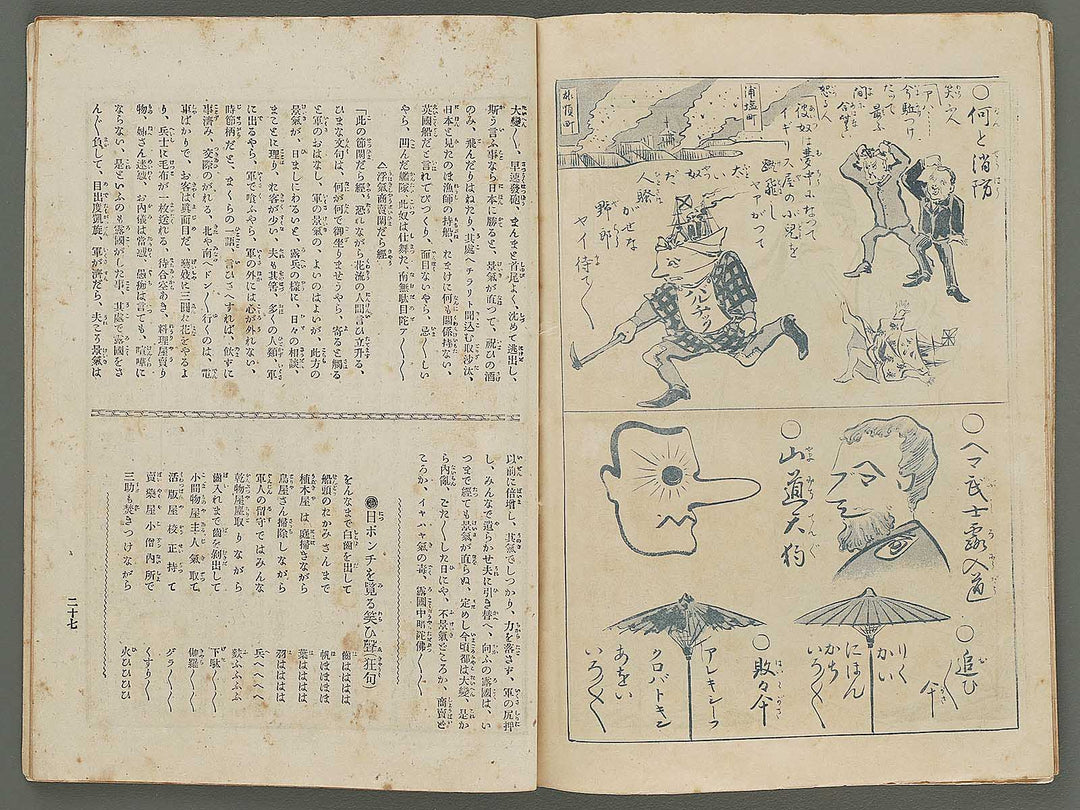 ○何と消防
笑ふ人
アハヽヽ
今駈け
たって
最ふ
間に
合ない
怒る人
彼奴は夢中になって
イギリス屋の小児を
蹴飛し
ヤアがって
太いやつだ
人騒
がせな
野郎
ヤイ待て〱
浦塩町
旅順町
バルチック
○ヘマ武士露入道
○山道天狗
○追ひ〱傘
りくかい
にほん
かちいろ〱
○敗々傘
アレキシーフ
クロバトキン
あをい
いろ〱
大變〱、早速發砲、まんまと首尾よく、沈めて逃出し、
斯う言ふ事なら日本に勝ると、景氣が直つて、祝ひの酒
のみ、飛んだりはねたり、其處へチラリト聞込む取沙汰、
日本と見たのは漁師の持船、れまけに何も關係持ない、
英國船だと言れてびつくり、面目ないやら、忌〱しい
やら、凹んだ艦隊、此奴は仕舞た、南無駄目陀ア〱〱
△浮氣商賣閑だら經
「此の節閑だら經、恐れながら花流の人間言ひ立升る、
ひまな文句は、何が何で御坐りませうやら、寄ると觸る
と軍のおはなし、軍の景氣の、よいのはよいが、此方の
景氣が、日ましにわるのと、露兵の樣に、日々の相談、
まことに理り、れ客が少い、夫も其筈、多くの人類、軍
に出るやら、軍で喰ふやら、軍の外には心が外れない、
時節柄だと、まくらの一語、言ひさへすれば、飲すに
事濟み、交際のがれる、北や南へドン〱行くのは、電
車ばかりで、お客は眞面目だ、藝妓に三圓た花をやるよ
り、兵士に毛布が一枚送れる、待合空あき、料理屋賣り
物、姉さん迷惑、お内儀は當惑、愚痴は言ても、喧嘩に
ならない、是といふのも露國がした事、其處で露國をさ
んざ〱負して、目出度凱旋、軍が濟だら、夫こそ景氣は
以前に倍增し、其氣でしつかり、力を落さず、軍の尻押
し、みんなで遣らかせ夫に引き替へ、向ふの露國は、い
つまで經ても景氣が直らぬ、定めし今頃都は大變、是か
ら内傷、ごた〱した日にや、不景氣どころか、商賣ど
ころか、イヤハヤ氣の毒、露國中暗陀佛〱〱
◉日ポンチを覽る笑ひ聲(狂句)
をんなまで白齒を出して　齒ははは
船頭のおかみさんまで　帆ほほほほ
植木屋は庭掃きながら　葉はははは
鳥屋さん掃除しながら　羽ははは
軍人の留守ではみんな　兵へへへへ
乾物屋塵取りながら　麩ふふふふ
齒入れまで齒を剝出して　下駄〱〱
小間物屋主人氣取て　伽羅〱〱
活版屋校正持て　グラ〱〱
賣藥屋小僧内所で　くすり〱
三助も焚きつけながら　火ひひひひ
二十七